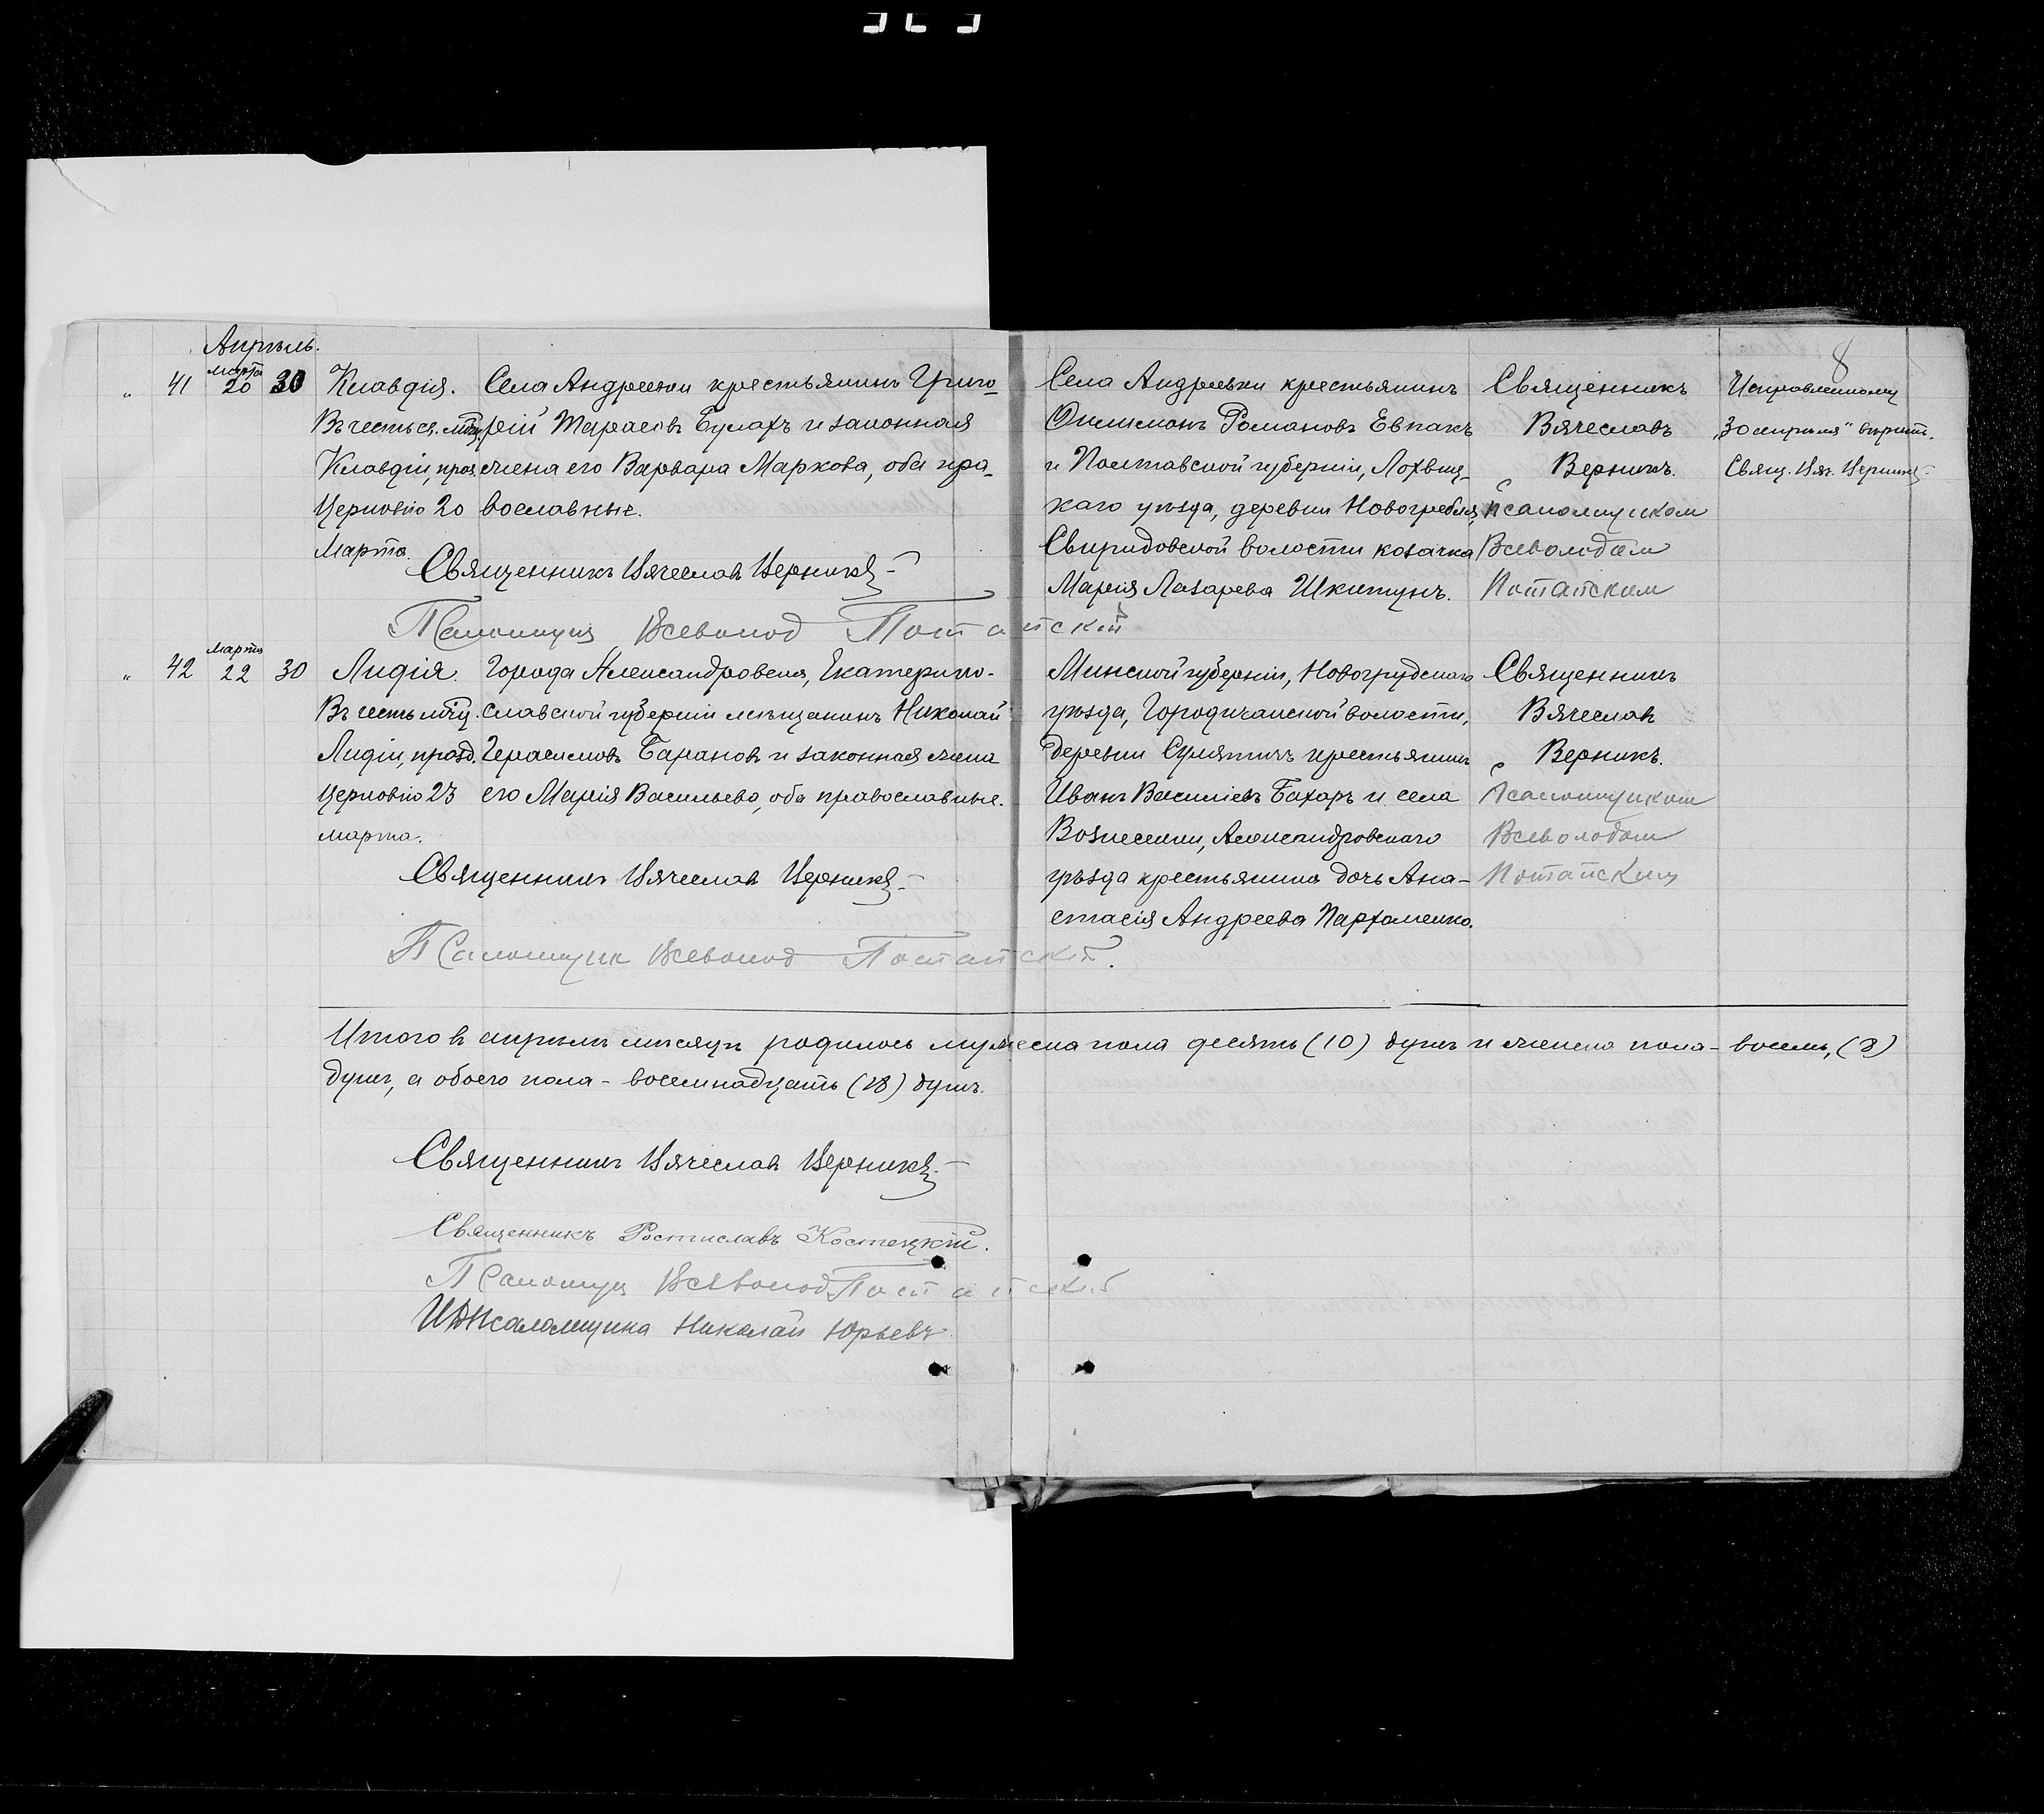 8
Апрѣль.
„ 41 марта 20 30 Клавдія. Села Андреевки крестьянинъ Григо-
Въ честь св. мчц. рій Тарасовъ Булахъ и законная
Клавдіи, празд. жена его Варвара Маркова, оба пра-
Церковію 20 вославные.
Марта.
Священникъ Вячеславъ Верникъ
Псаломщикъ Всеволод Потапскій
Села Андреевки крестьянинъ
Филимонъ Романовъ Евпакъ
и Полтавской губерніи, Лохвиц-
каго уѣзда, деревни Новогребля,
Свиридовской волости козачка
Марія Лазарева Шкитунъ.
Священникъ
Вячеславъ
Верникъ.
с псаломщиком
Всеволодом
Потапским
Исправленному
„30 апрѣля" вѣрить.
Свящ. Вяч. Верникъ
„ 42 марта 22 30 Лидія Города Александровска, Екатерино-
Въ честь мчц. славской губерніи мѣщанинъ Николай
Лидіи, празд. Герасимовъ Барановъ и законная жена
Церковію 23 его Марія Васильева, оба православные.
марта.
Священникъ Вячеславъ Верникъ
Псаломщик Всеволод Потапскій.
Минской губерніи, Новогрудскаго
уѣзда, Городичанской волости,
деревни крестьянинъ
Иванъ Василіевъ Бахаръ и села
Вознесенки, Александровскаго
уѣзда крестьянина дочь Ана-
стасія Андреева Пархоменко.
Священникъ
Вячеславъ
Верникъ.
с Псаломщиком
Всеволодом
Потапским
Итого въ апрѣлѣ мѣсяцѣ родилось мужеска пола десять (10) душъ и женска пола - восемь, (8)
душъ, а обоего пола - восемнадцать (18) душъ.
Священникъ Вячеславъ Верникъ
Священникъ Ростиславъ Костецкій.
Псаломщ Всеволод Потапскій
И. д. Псаломщика Николай Юрьевъ